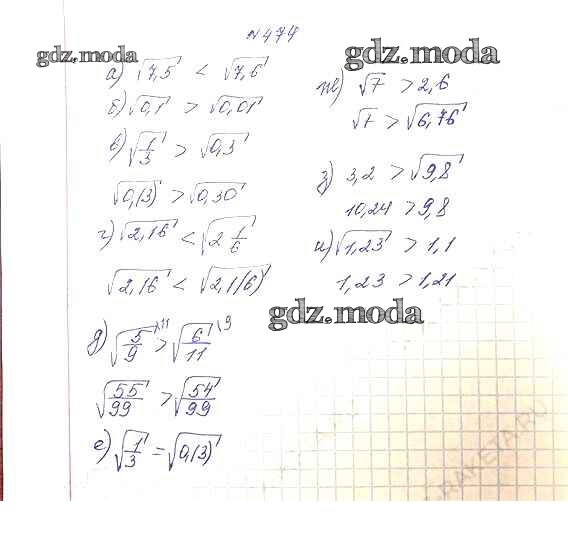 № 474
gdz.moda
gdz.moda
а) √7,5 < √7,6
б) √0,1 > √0,01
в) √1/3 > √0,3
√0,(3) > √0,30
г) √2,16 < √2 1/6
√2,16 < √2,1(6)
д) √5/9 \11 > √6/11 \9
√55/99 > √54/99
е) √1/3 = √0,(3)
ж) √7 > 2,6
√7 > √6,76
з) 3,2 > √9,8
10,24 > 9,8
и) √1,23 > 1,1
1,23 > 1,21
gdz.moda
RAKETA.RU